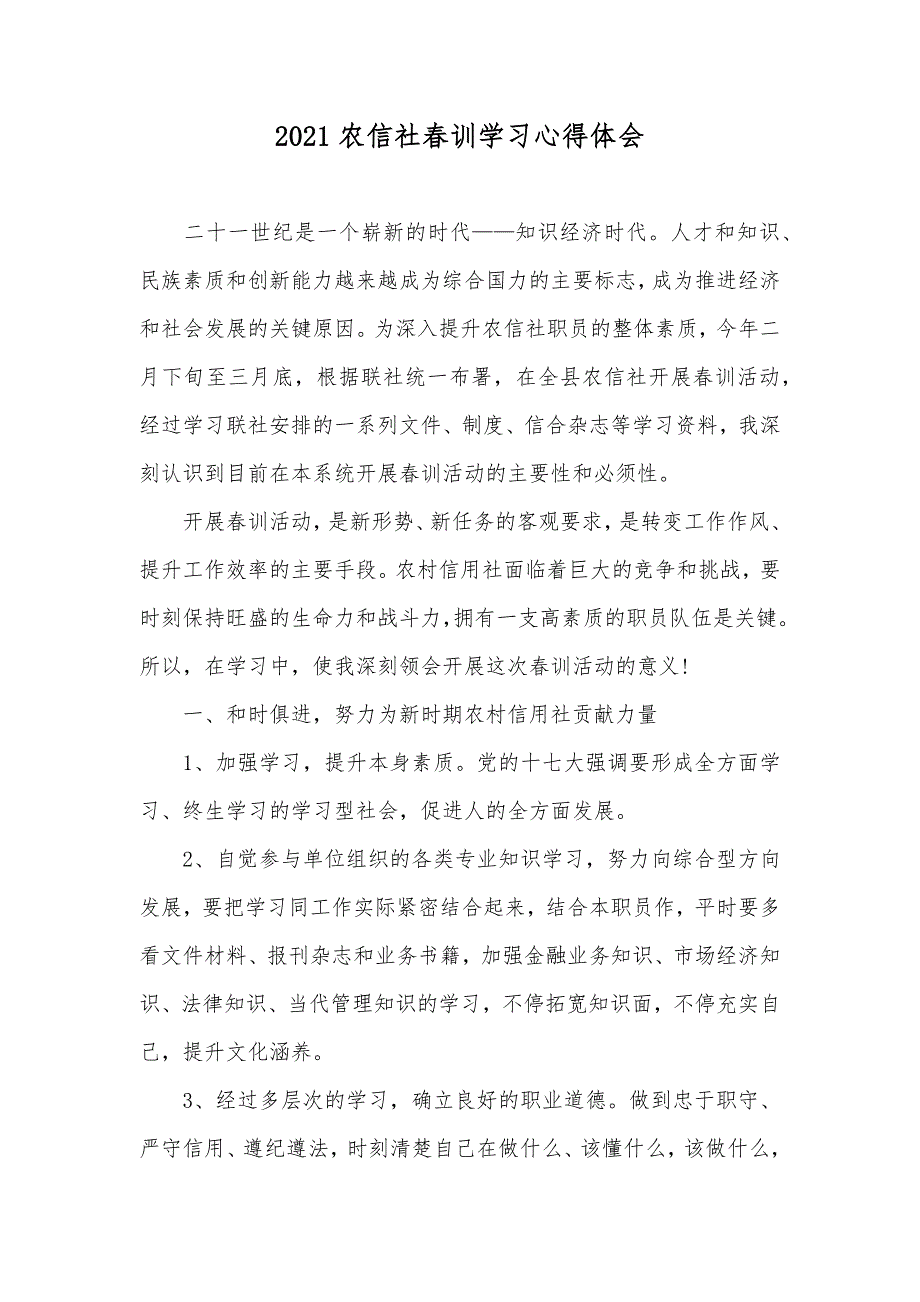 2021农信社春训学习心得体会
二十一世纪是一个崭新的时代——知识经济时代。人才和知识、
民族素质和创新能力越来越成为综合国力的主要标志，成为推进经济
和社会发展的关键原因。为深入提升农信社职员的整体素质，今年二
月下旬至三月底，根据联社统一布署，在全县农信社开展春训活动，
经过学习联社安排的一系列文件、制度、信合杂志等学习资料，我深
刻认识到目前在本系统开展春训活动的主要性和必须性。
开展春训活动，是新形势、新任务的客观要求，是转变工作作风、
提升工作效率的主要手段。农村信用社面临着巨大的竞争和挑战，要
时刻保持旺盛的生命力和战斗力，拥有一支高素质的职员队伍是关键。
所以，在学习中，使我深刻领会开展这次春训活动的意义!
一、和时俱进，努力为新时期农村信用社贡献力量
1、加强学习，提升本身素质。党的十七大强调要形成全方面学
习、终生学习的学习型社会，促进人的全方面发展。
2、自觉参与单位组织的各类专业知识学习，努力向综合型方向
发展，要把学习同工作实际紧密结合起来，结合本职员作，平时要多
看文件材料、报刊杂志和业务书籍，加强金融业务知识、市场经济知
识、法律知识、当代管理知识的学习，不停拓宽知识面，不停充实自
己，提升文化涵养。
3、经过多层次的学习，确立良好的职业道德。做到忠于职守、
严守信用、遵纪遵法，时刻清楚自己在做什么、该懂什么，该做什么，